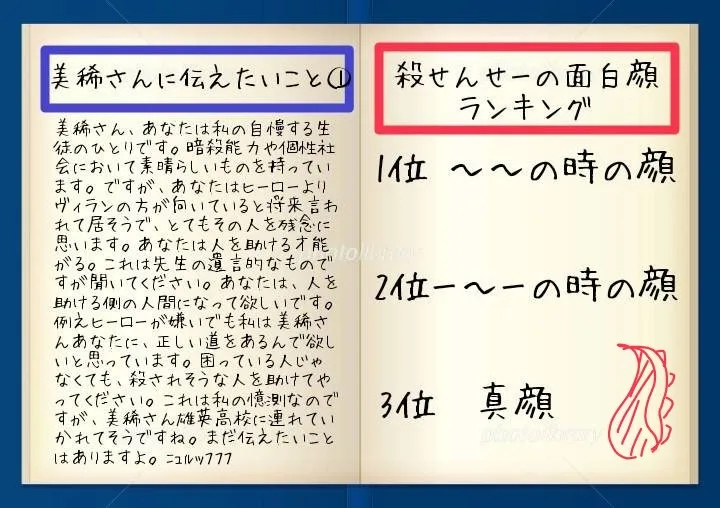 美稀さんに伝えたいこと①
美稀さん、あなたは私の自慢する生
徒のひとりです。暗殺能力や個性社
会において素晴らしいものを持ってい
ます。ですが、あなたはヒーローより
ヴィランの方が向いていると将来言わ
れて居そうで、とてもその人を残念に
思います。あなたは人を助ける才能
がる。これは先生の遺言的なもので
すが聞いてください。あなたは、人を
助ける側の人間になって欲しいです。
例えヒーローが嫌いでも私は美稀さ
んあなたに、正しい道をあるんで欲し
いと思っています。困っている人じゃ
なくても、殺されそうな人を助けてや
ってください。これは私の憶測なので
すが、美稀さん雄英高校に連れてい
かれてそうですね。まだ伝えたいこと
はありますよ。ﾆｭﾙｯﾌﾌﾌ
殺せんせーの面白顔
ランキング
1位 〜〜の時の顔
2位ー〜ーの時の顔
3位 真顔